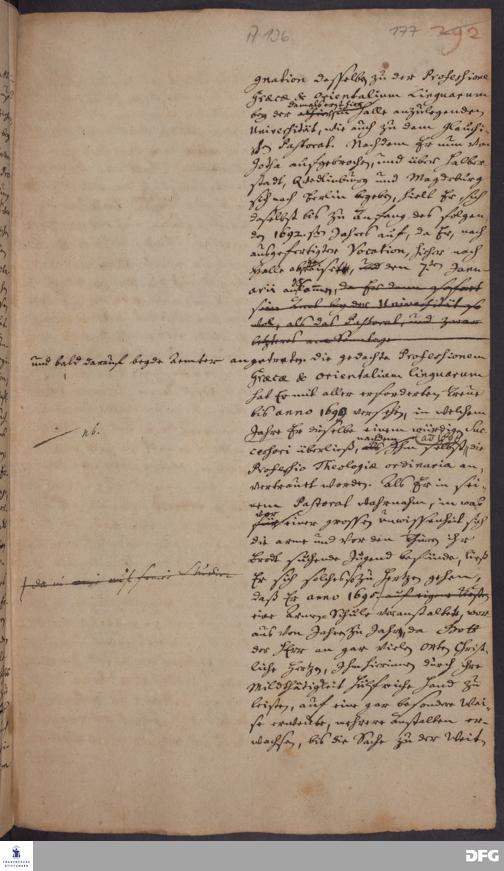 177 292
gnation desselben zu der Professione
Græcæ & Orientalium Linguarum
bey der damals erst hier Halle anzulegenden
Universität, wie auch zu dem Glauchi-
schen Pastorat. Nachdem Er nun von
Gotha aufgebrochen, und über Halber
stadt, Quedlinburg und Magdeburg
sich nach Berlin begeben, hielt Er sich
daselbst bis zu Anfang des folgen
den 1692. sten Jahres auf, da Er, nach
ausgefertigter Vocation, hieher nach
Halle und den 7ten Janu
arii
und bald darauf beyde Aemter angetreten. die gedachte Professionem
Græcæ & Orientalium linguarum
hat Er mit aller erforderten Treue
bis anno 1698 versehen, in welchem
Jahre Er dieselbe einem würdigen Suc-
nb.
cessori überließ, nachdem Ihm selbst die
Professio Theologiæ ordinaria an-
vertrauet worden. Als Er in sei-
nem Pastorat wahrnahm, in was
vor einer grossen Unwissenheit sich
die arme und vor den Thüren ihr
Brodt suchende Jugend befünde, ließ
Er sich solches zu Hertzen gehen,
daß Er anno 1695.
eine Armen-Schule veranstaltete, wor
aus von Jahren zu Jahren, da Gott
der Herr an gar vielen Orten Christ-
liche Hertzen, Ihm hierinnen durch ihre
Mildthätigkeit hülfreiche Hand zu
leisten, auf eine gar besondere Wei-
se erweckte, mehrere Anstalten er-
wachsen, bis die Sache zu der Weit
FRANCKESCHE STIFTUNGEN
DFG